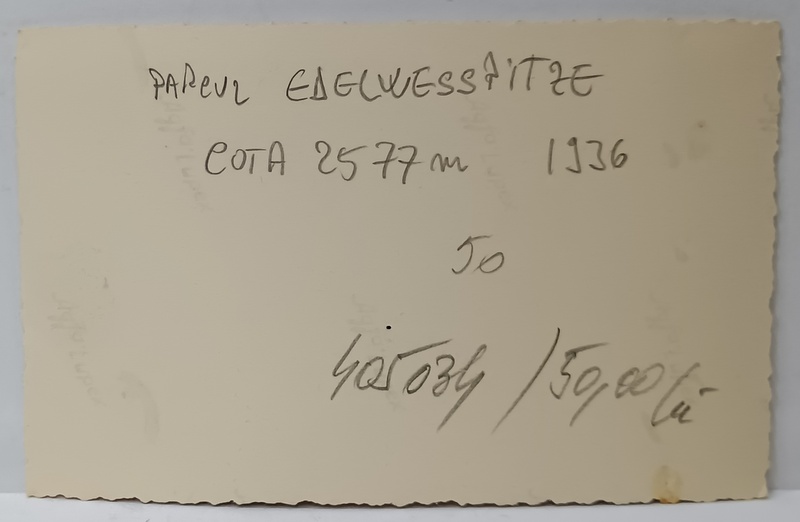 PARCUL EDELWESSPITZE
COTA 2577 m 1936
50
405034 / 50,00 lei